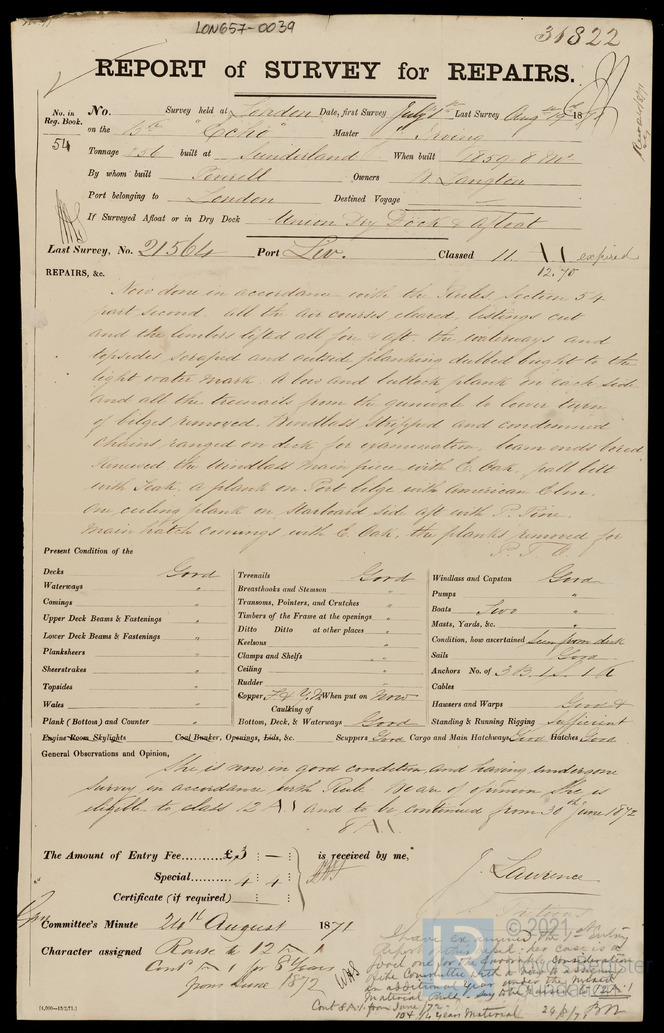 LON657-0039
31822
REPORT of SURVEY for REPAIRS.
No. in Reg. Book. 54
No. Survey held at London Date, first Survey July 1st Last Survey Augt 19th 1871
on the Bk "Echo" Master Irving
Tonnage 256 built at Sunderland When built 1859 8 Mo
By whom built Pounell Owners W. Langton
Port belonging to London Destined Voyage
If Surveyed Afloat or in Dry Dock Union Dry Dock & afloat
Last Survey, No. 21564 Port Liv. Classed 11 A1 expired 12.70
REPAIRS, &c.
Now done in accordance with the Rules Section 54
part second all the air courses cleared, listings cut
and the limbers lifted all for & aft. the waterways and
topsides scraped and outside planking dubbed bright to the
light water mark. A bow and buttock plank on each side
and all the treenails from the gunwale to lower turn
of bilges removed. Windlass stripped and condemned
chains ranged on deck for examination, beam ends bored
renewed the windlass main piece with E. Oak, pall bitt
with Teak. a plank on Port bilge with American Elm.
one ceiling plank on Starboard side aft with P. Pine.
main hatch comings with E. Oak, the planks removed for
P. T. O.
Present Condition of the
Decks Good
Waterways "
Comings "
Upper Deck Beams & Fastenings "
Lower Deck Beams & Fastenings "
Planksheers "
Sheerstrakes "
Topsides "
Wales "
Plank (Bottom) and Counter "
Treenails Good
Breasthooks and Stemson "
Transoms, Pointers, and Crutches "
Timbers of the Frame at the openings "
Ditto Ditto at other places "
Keelsons "
Clamps and Shelfs "
Ceiling "
Rudder "
Copper, F & Y.M When put on Now
Caulking of
Bottom, Deck, & Waterways Good
Windlass and Capstan Good
Pumps "
Boats Two "
Masts, Yards, &c. "
Condition, how ascertained Seen from deck
Sails Good
Anchors No. of 3 B. 1 S. 1 K
Cables
Hawsers and Warps Good &
Standing & Running Rigging Sufficient
Engine Room Skylights Coal Bunker, Openings, Lids, &c. Scuppers Good Cargo and Main Hatchways Good Hatches Good
General Observations and Opinion,
She is now in good condition, and having undergone
survey in accordance with Rule. We are of opinion She is
eligible to class 12 A1 and to be continued from 30th June 1872
8 A.1.
The Amount of Entry Fee......£3 : — is received by me,
Special..... 4 : 4
Certificate (if required) :
J. Lawrence
Committee's Minute 24th August 1871
Character assigned Raise to 12 A 1
Contd A 1 for 8 Years
from June 1872
I have examined the 1st survey
Report & her case is a
good one for the favorable consideration
of the Committee with a view to assign
an additional Year under the mixed
Material Rule,
Cont 8 A.1 from June /72
[4,000—15/2/71.]
© 2021